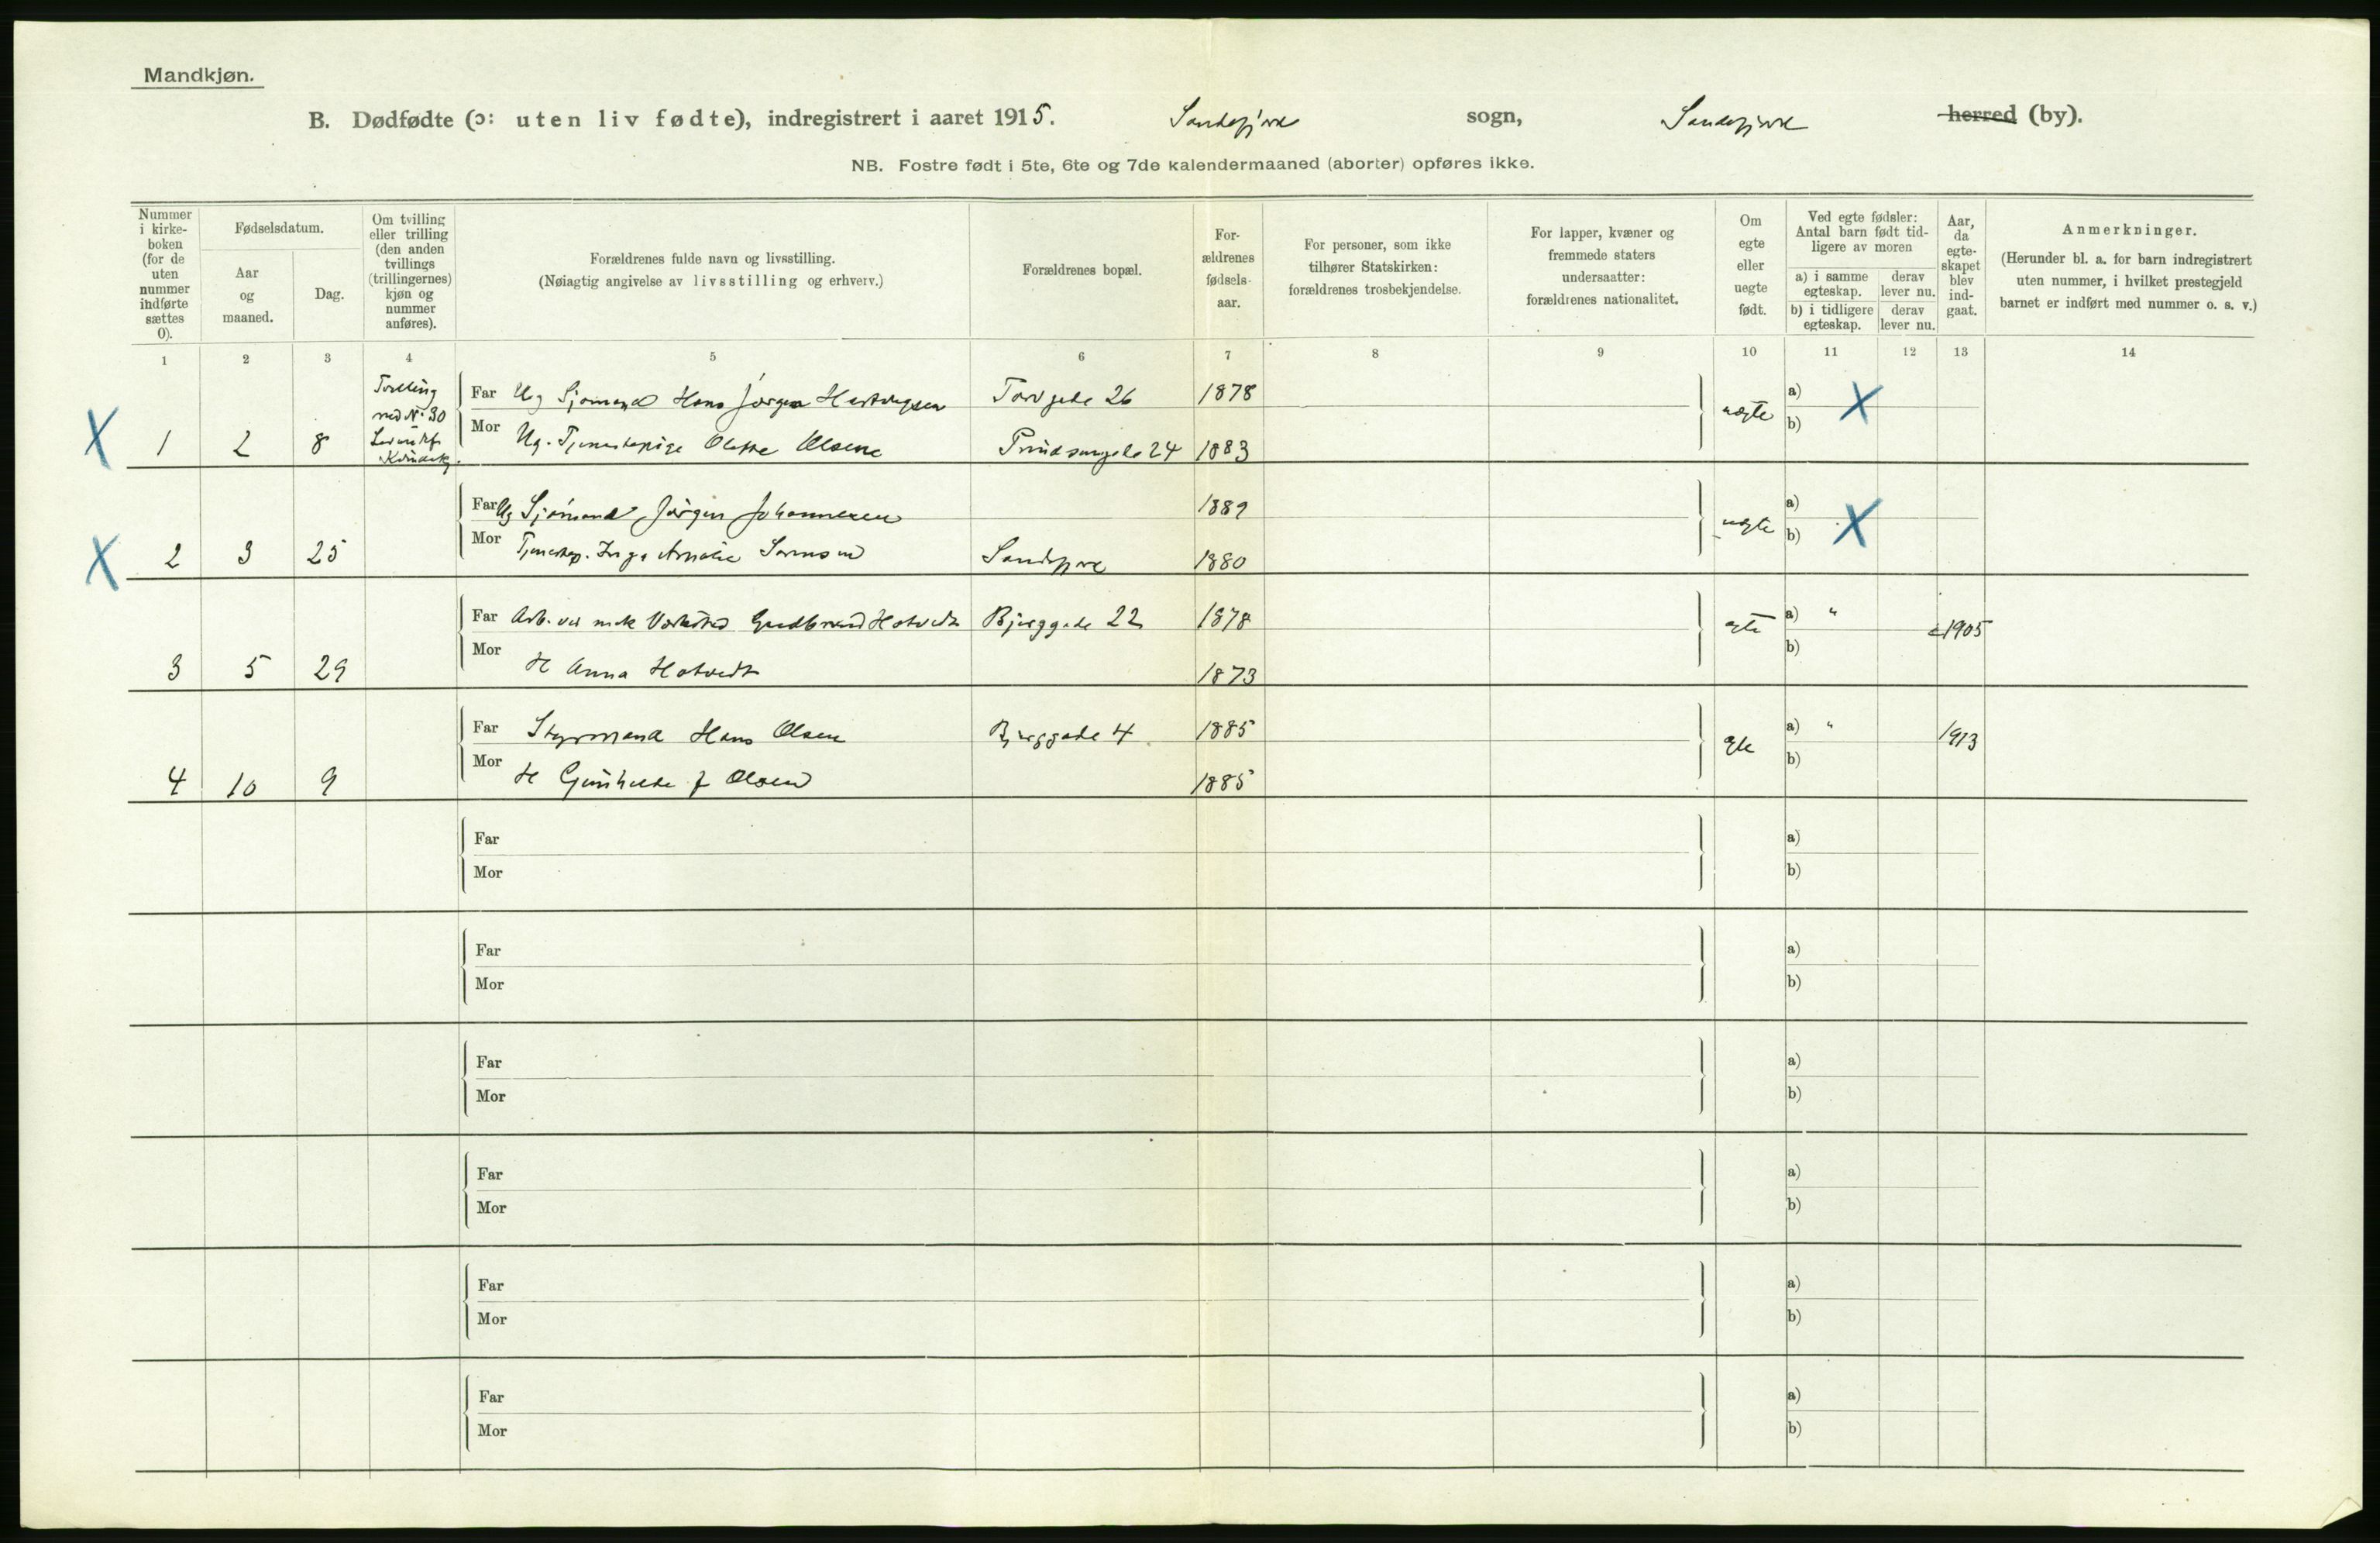 Mandkjøn.
B. Dødfødte (ɔ: uten liv fødte), indregistrert i aaret 1915. Sandefjord sogn, Sandefjord herred (by).
NB. Fostre født i 5te, 6te og 7de kalendermaaned (aborter) opføres ikke.
Nummer i kirke-boken (for de uten nummer indførte sættes 0).
Fødselsdatum.
Aar og maaned.
Dag.
Om tvilling eller trilling (den anden tvillings (trillingernes) kjøn og nummer anføres).
Forældrenes fulde navn og livsstilling.
(Nøiagtig angivelse av livsstilling og erhverv.)
Forældrenes bopæl.
For-ældrenes fødsels-aar.
For personer, som ikke tilhører Statskirken: forældrenes trosbekjendelse.
For lapper, kvæner og fremmede staters undersaatter: forældrenes nationalitet.
Om egte eller uegte født.
Ved egte fødsler: Antal barn født tid-ligere av moren
a) i samme egteskap. derav lever nu.
b) i tidligere egteskap. derav lever nu.
Aar, da egte-skapet blev ind-gaat.
Anmerkninger.
(Herunder bl. a. for barn indregistrert uten nummer, i hvilket prestegjeld barnet er indført med nummer o. s. v.)
1 2 3 4 5 6 7 8 9 10 11 12 13 14
Tvilling
med No 30
X 1 2 8
Far Ug Sjømand Hans Jørgen Hertvigsen Torvgade 26 1878 uegte a) X
Mor Ug. Tjenestepige Olefine Olsen Prindsensgade 24 1883 b)
X 2 3 25
Far Ug Sjømand Jørgen Johannesen 1889 uegte a) X
Mor Tjenestep. Inga Amalie Sørensen Sandefjord 1880 b)
3 5 29
Far Arb. ved mek Værksted Gudbrand Hotvedt Bjerggade 22 1878 egte a) " 1905
Mor H Anna Hotvedt 1873 b)
4 10 9
Far Styrmand Hans Olsen Bjerggade 4 1885 egte a) " 1913
Mor H Gunhilde J Olsen 1885 b)
Far a)
Mor b)
Far a)
Mor b)
Far a)
Mor b)
Far a)
Mor b)
Far a)
Mor b)
Far a)
Mor b)